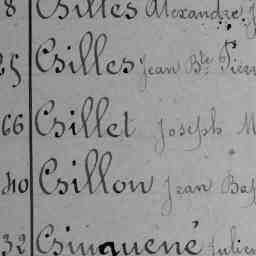 8 Gilles Alexandre J
25 Gilles Jean Bte Pierr
66 Gillet Joseph M
40 Gillon Jean Bap
32 Ginquené Julien